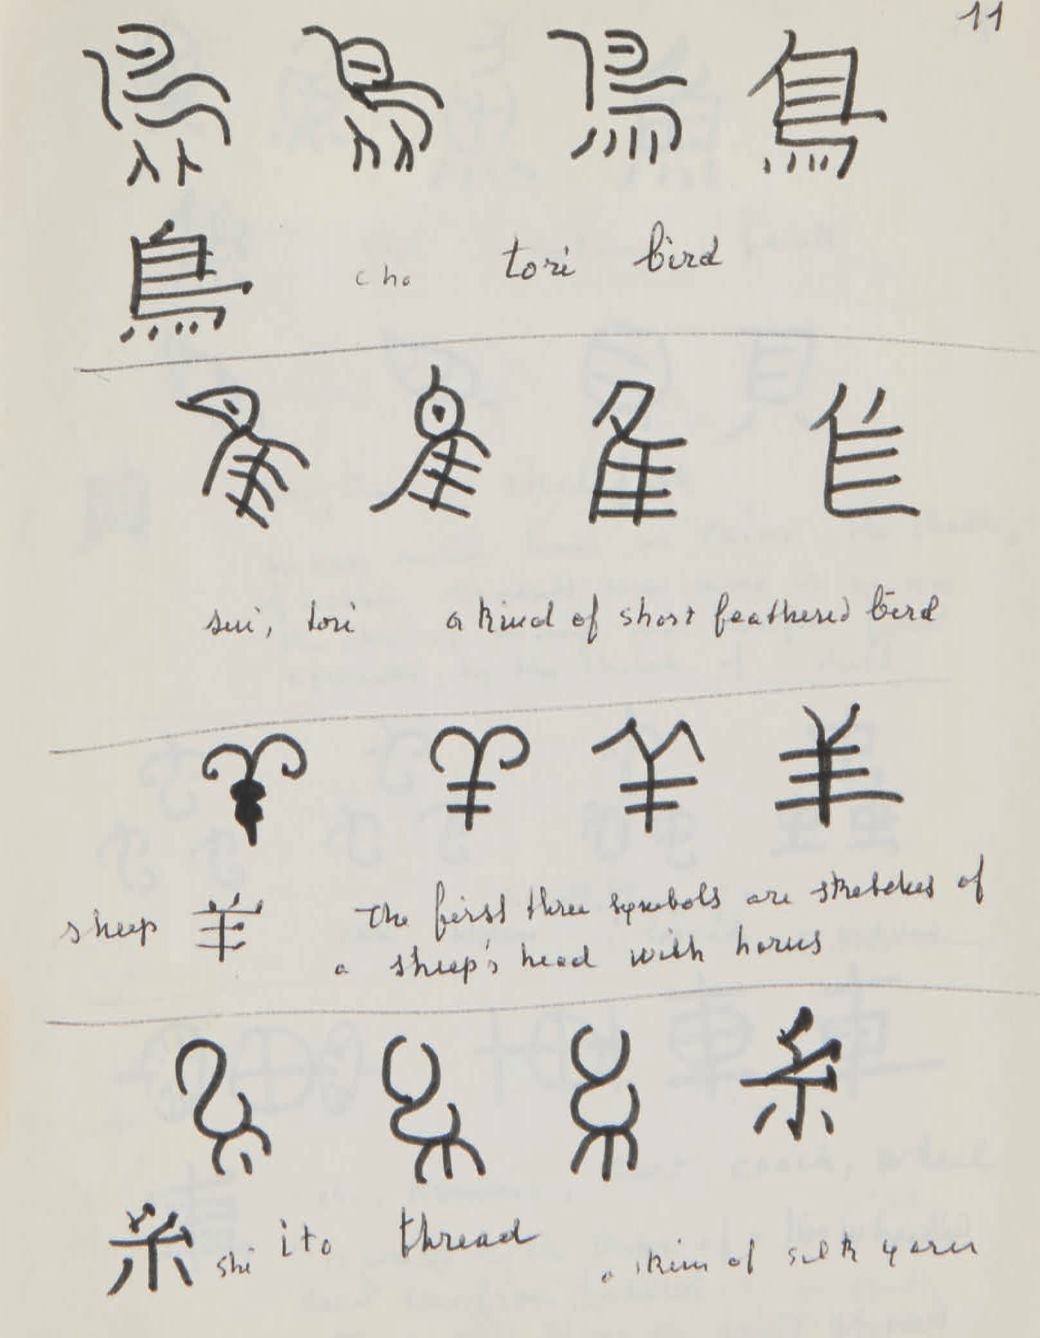 11
鳥
鳥 cho tori bird
隹
sui, tori a kind of short feathered bird
羊
sheep 羊 The first three symbols are sketches of
a sheep's head with horns
糸
糸 shi ito thread a skein of silk yarn